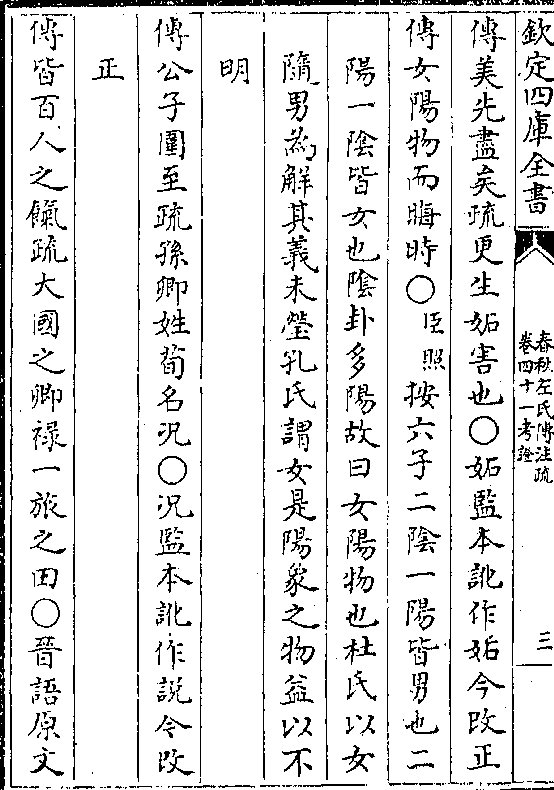 欽定四庫全書
春秋左氏傳注疏
卷四十一考證
三
傳美先盡矣疏更生妬害也〇妬監本訛作姤今改正
傳女陽物而晦時〇臣照按六子二陰一陽皆男也二
陽一陰皆女也陰卦多陽故曰女陽物也杜氏以女
隨男為解其義未瑩孔氏謂女是陽象之物益以不
明
傳公子圍至疏孫卿姓荀名况〇况監本訛作説今改
正
傳皆百人之餼疏大國之卿祿一旅之田〇晉語原文